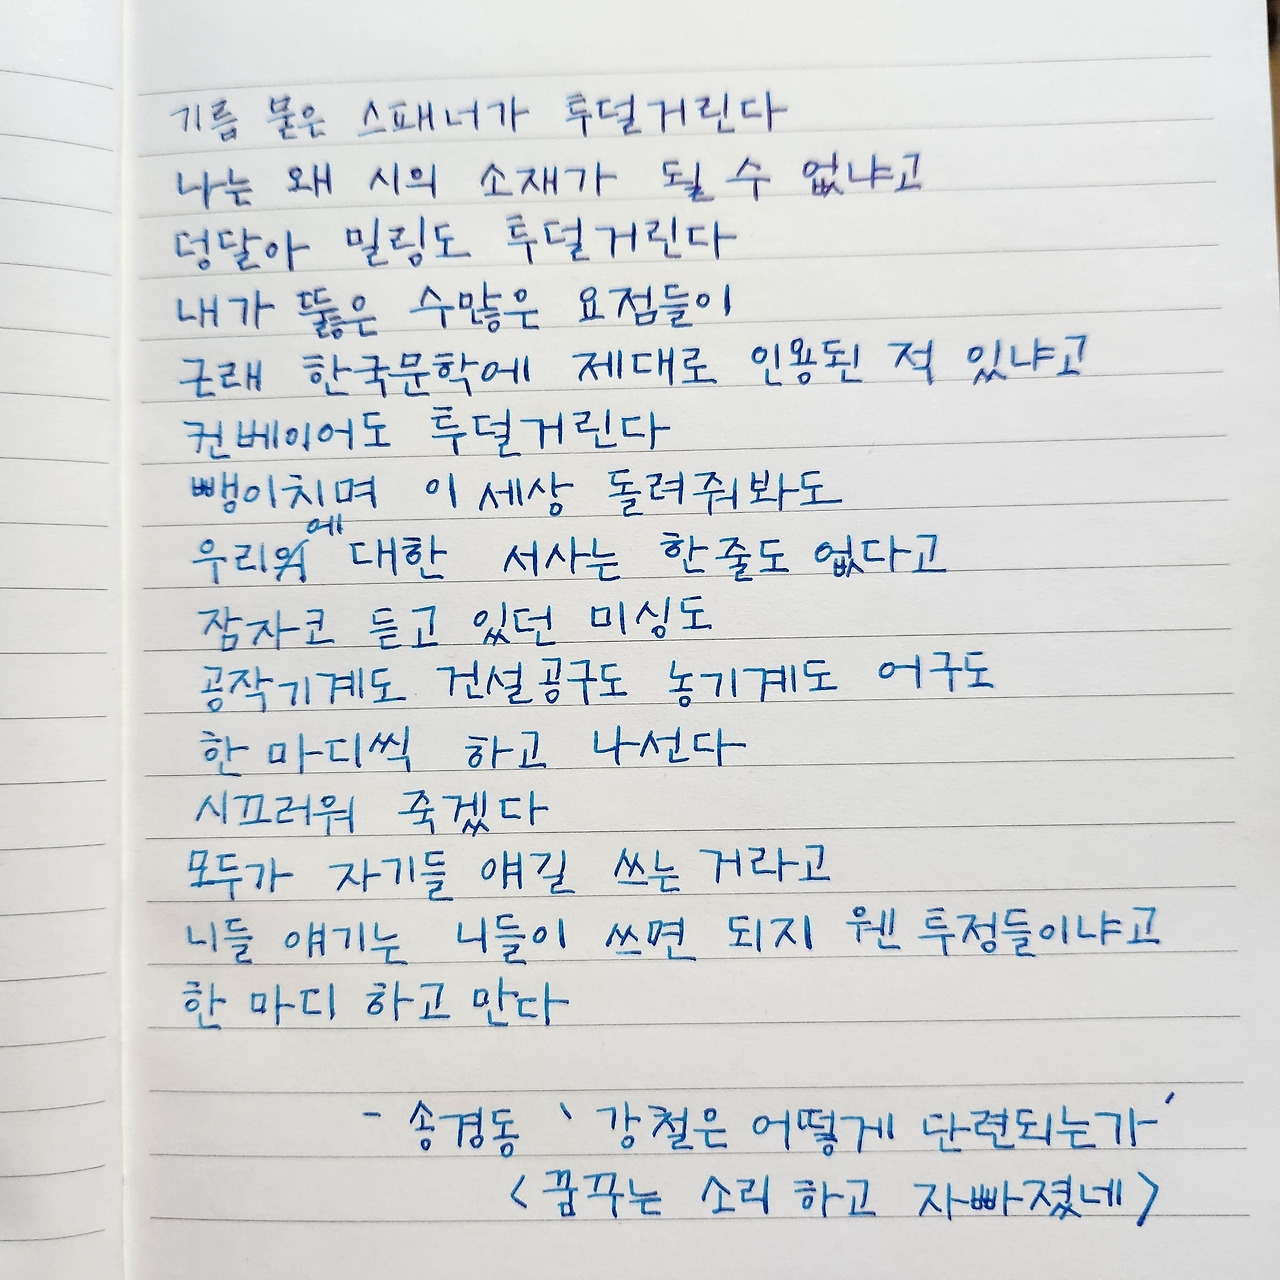 기름 묻은 스패너가 투덜거린다
나는 왜 시의 소재가 될 수 없냐고
덩달아 밀링도 투덜거린다
내가 뚫은 수많은 요점들이
근래 한국문학에 제대로 인용된 적 있냐고
컨베이어도 투덜거린다
뺑이치며 이 세상 돌려줘봐도
우리에 대한 서사는 한 줄도 없다고
잠자코 듣고 있던 미싱도
공작기계도 건설공구도 농기계도 어구도
한 마디씩 하고 나선다
시끄러워 죽겠다
모두가 자기들 얘길 쓰는 거라고
니들 얘기는 니들이 쓰면 되지 웬 투정들이냐고
한 마디 하고 만다
- 송경동 '강철은 어떻게 단련되는가'
<꿈꾸는 소리 하고 자빠졌네>